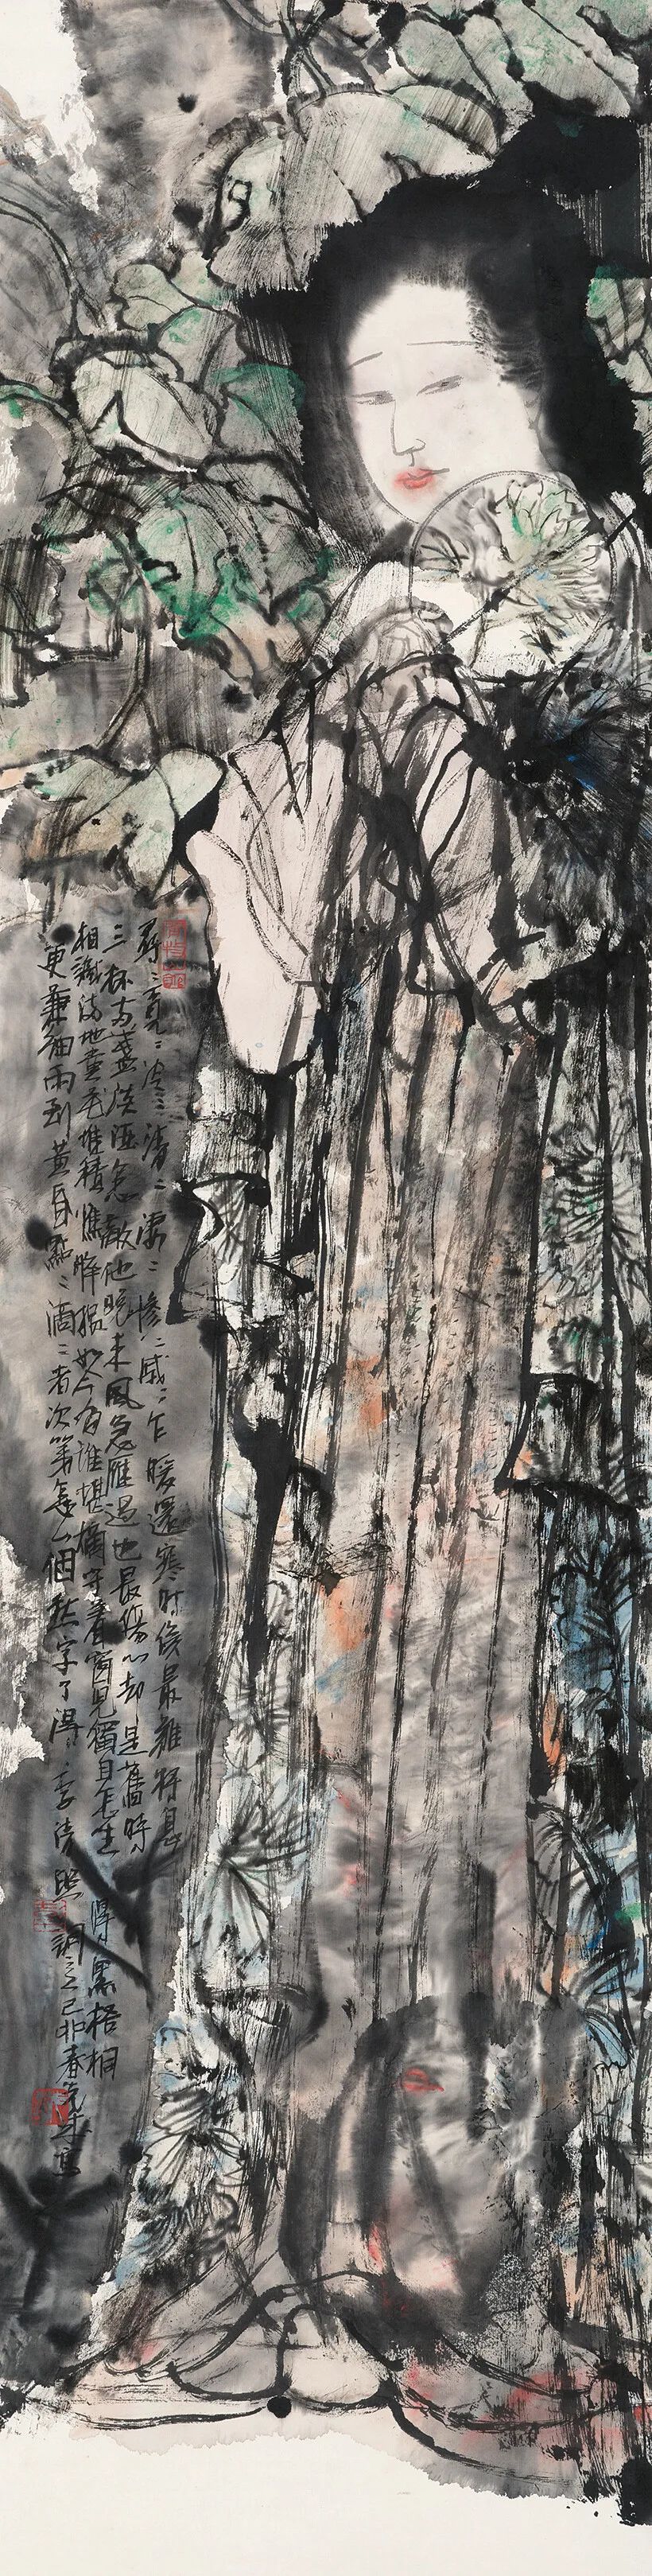 尋〻覓〻冷〻清〻凄〻慘〻戚〻乍暖還寒時候最難將息
三杯兩盞淡酒怎敵他晚來風急雁過也最傷心却是舊時
相識滿地黃花堆積憔悴損如今有誰堪摘守着窗兒獨自怎生得黑梧桐
更兼細雨到黃昏點〻滴〻者次第怎么個愁字了得 李清照詞 己卯春 寫